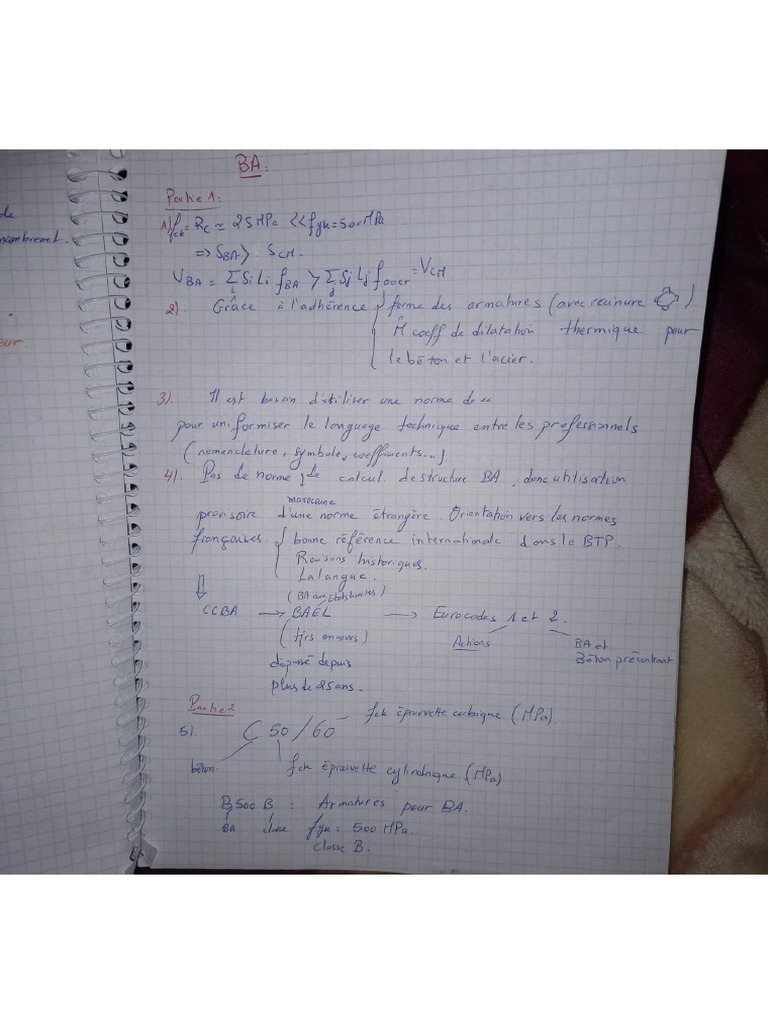 de
ncombremet.
eur.
BA:
Partie 1:
1) fck = Rc ≃ 25 MPa << fyk = 500 MPa
=> SBA > SCM.
VBA = Σi Si Li fBA > Σj Sj Lj facier = VCM
2). Grâce à l'adhérence { forme des armatures (avec ).
M̂ coeff de dilatation thermique pour
le béton et l'acier.
3). Il est besoin d'utiliser une norme de
pour uniformiser le language technique entre les professionnels
(nomenclature, symbole, coefficients...)
4). Pas de norme de calcul de structure BA, donc utilisation
marocaine
provisoire d'une norme étrangère. Orientation vers les normes
françaises. { bonne référence internationale dans le BTP.
Raisons historiques.
La langue.
(BA aux états limites)
⇓ CCBA → BAEL → Eurocodes 1 et 2.
(tjrs en cours) Actions BA et
Béton précontraint
dépassé depuis
plus de 25 ans.
Partie 2
fck éprouvette cubique (MPa).
5). C 50/60
béton fck éprouvette cylindrique (MPa)
B500 B : Armatures pour BA.
BA fyk = 500 MPa.
Classe B.